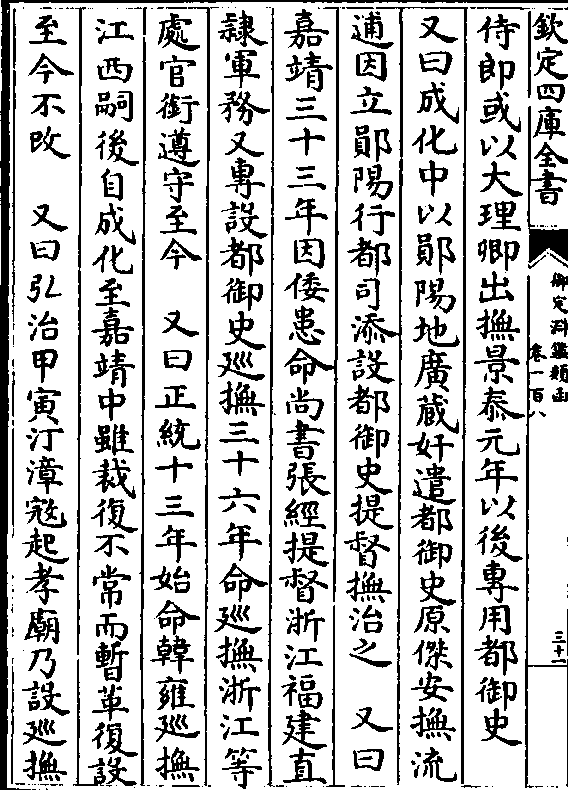 欽定四庫全書
御定淵鑑類函
卷一百八
三十二
侍郎或以大理卿出撫景泰元年以後專用都御史
又曰成化中以鄖陽地廣蔵奸遣都御史原傑安撫流
逋因立鄖陽行都司添設都御史提督撫治之　又曰
嘉靖三十三年因倭患命尚書張經提督浙江福建直
隸軍務又專設都御史廵撫三十六年命廵撫浙江等
處官銜遵守至今　又曰正統十三年始命韓雍廵撫
江西嗣後自成化至嘉靖中雖裁復不常而暫革復設
至今不改　又曰弘治甲寅汀漳冦起孝廟乃設廵撫